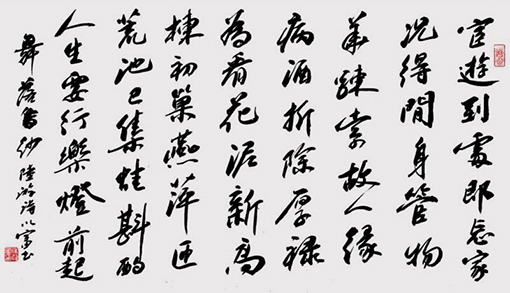 宦遊到處即忘家
况得閒身管物
華疎索故人緣
病酒折除厚禄
為看花泥新高
棟初巢燕萍匝
荒池已集蛙斟酌
人生要行樂燈前起
舞落烏紗 陸游詩